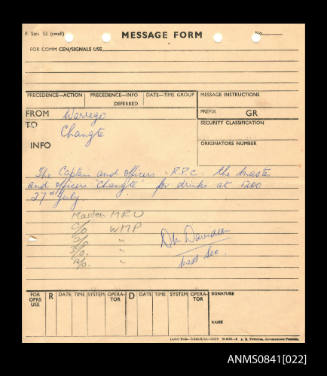 P. Sigs. 52 (small)
MESSAGE FORM
No.
FOR COMM CEN/SIGNALS USE
PRECEDENCE—ACTION
PRECEDENCE—INFO
DATE-TIME GROUP
MESSAGE INSTRUCTIONS
DEFERRED
FROM Warrego
PREFIX GR
TO
Changte
SECURITY CLASSIFICATION
INFO
ORIGINATORS NUMBER
The Captain and officers R.P.C. the master
and officers "Changte" for drinks at 1200
27th July
Master MRU
C/O. WMP
2/O. "
3/O. "
R/O. "
FOR OPRS USE
R DATE TIME SYSTEM OPERATOR
D DATE TIME SYSTEM OPERATOR
SIGNATURE
NAME
ANMS0841[022]